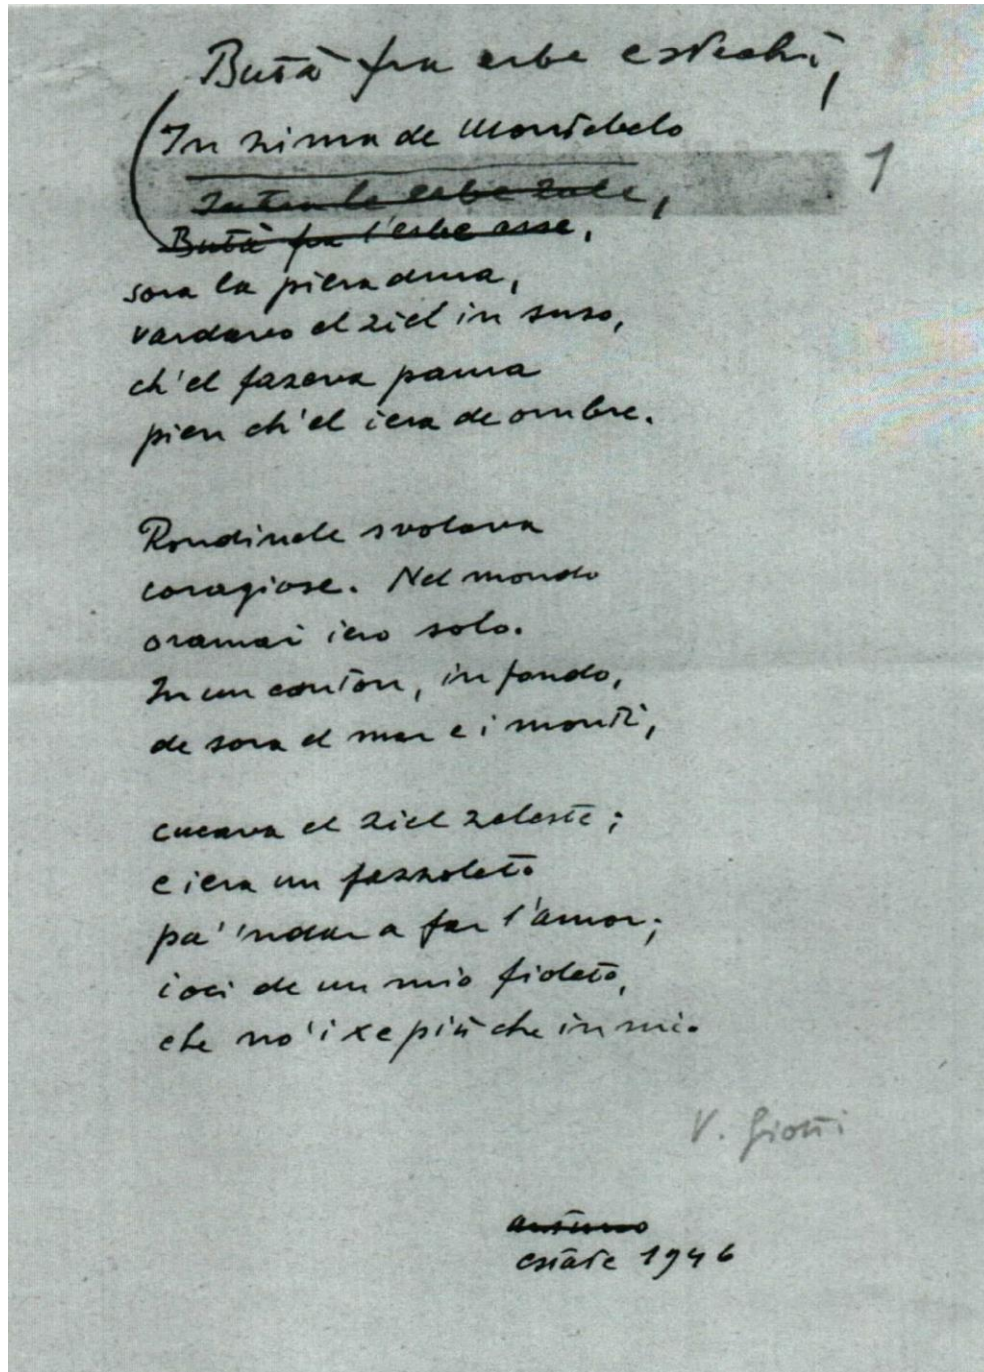 Butà fra erbe e stechi,
In zima de Montebelo
1
Intra le erbe zale,
Butà fra l'erbe arse,
sora la piera dura,
vardavo el ziel in suso,
ch'el fazeva paura
pien ch'el iera de ombre.
Rondinele svolava
coragiose. Nel mondo
oramai iero solo.
In un canton, in fondo,
de sora el mar e i monti,
cucava el ziel zeleste;
e iera un fazzoleto
pa' 'ndar a far l'amor;
i oci de un mio fioleto,
che no' i xe più che in mi.
V. Giotti
autunno
estate 1946